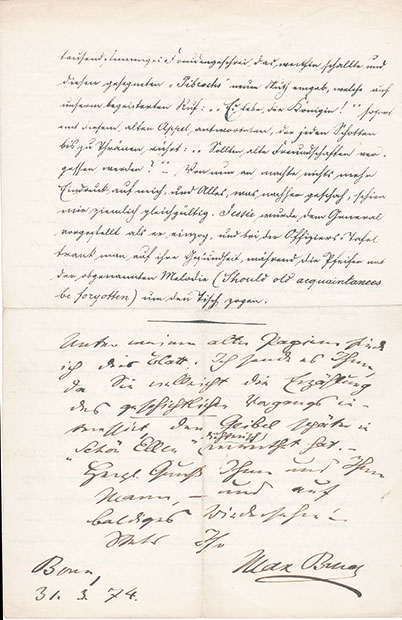 tausendstimmiges Freudengeschrei, das weithin schallte und
diesen gesegneten „Pibrochs“ neuen Muth eingab, welche auf
unserm begeisterten Ruf: „Es lebe die Königin!“ sofort
mit diesem alten Appel antworteten, der jeden Schotten
bis zu Thränen rührt: „Sollten alte Freundschaften ver-
gessen werden?“ – Von nun an machte nichts mehr
Eindruck auf mich, und Alles, was nachher geschah, schien
mir ziemlich gleichgültig. Jessie wurde dem General
vorgestellt als er einzog, und bei der Offiziers-Tafel
trank man auf ihre Gesundheit, während die Pfeifer mit
der obgenannten Melodie (Should old acquaintances
be forgotten) um den Tisch zogen.
Unter meinen alten Papieren finde
ich dies Blatt. Ich sende es Ihnen,
da Sie vielleicht die Erzählung
des geschichtlichen Vorgangs in-
teressirt, den Geibel später in
„Schön Ellen“ dichterisch verwerthet hat. –
Herzl. Gruß Ihnen und Ihrem
Mann, – und auf
baldiges Wiedersehen!
Stets Ihr
Max Bruch
Bonn,
31. 3. 74.